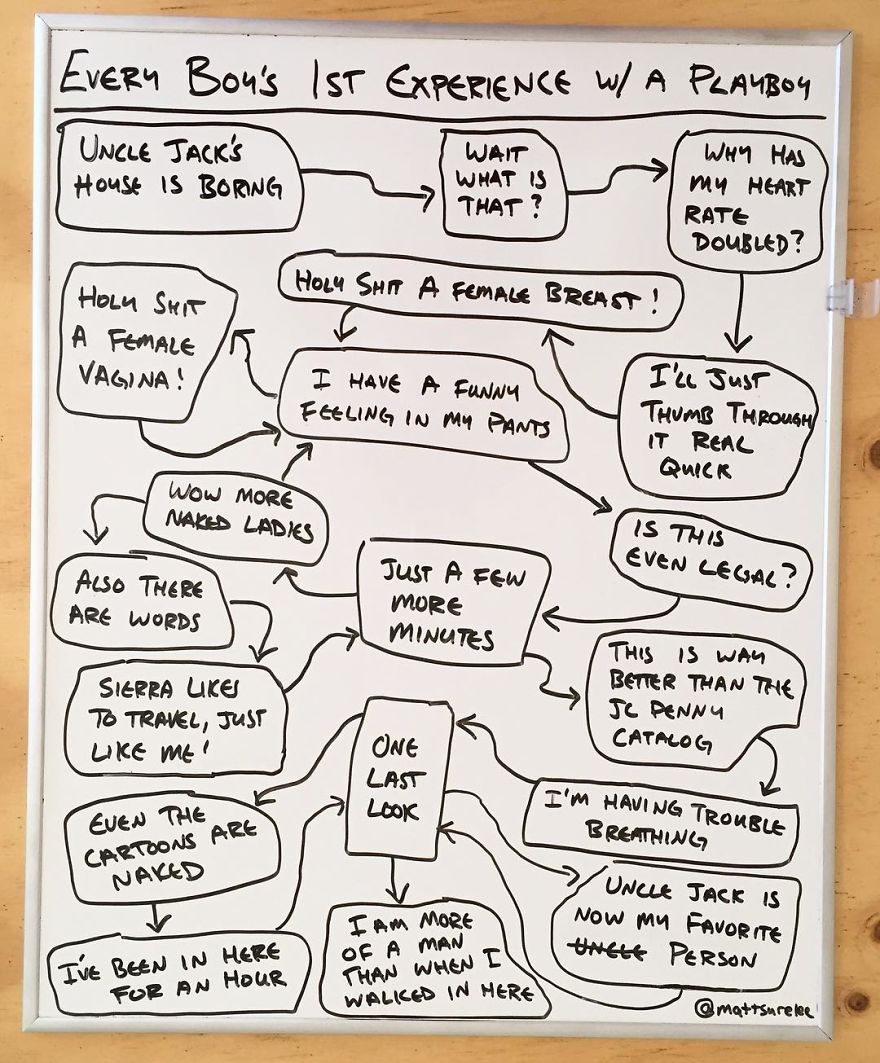 EVERY BOY'S 1ST EXPERIENCE W/ A PLAYBOY
UNCLE JACK'S
HOUSE IS BORING
WAIT
WHAT IS
THAT?
WHY HAS
MY HEART
RATE
DOUBLED?
HOLY SHIT A FEMALE BREAST!
HOLY SHIT
A FEMALE
VAGINA!
I HAVE A FUNNY
FEELING IN MY PANTS
I'LL JUST
THUMB THROUGH
IT REAL
QUICK
WOW MORE
NAKED LADIES
IS THIS
EVEN LEGAL?
ALSO THERE
ARE WORDS
JUST A FEW
MORE
MINUTES
SIERRA LIKES
TO TRAVEL, JUST
LIKE ME!
THIS IS WAY
BETTER THAN THE
JC PENNY
CATALOG
ONE
LAST
LOOK
I'M HAVING TROUBLE
BREATHING
EVEN THE
CARTOONS ARE
NAKED
UNCLE JACK IS
NOW MY FAVORITE
UNCLE PERSON
I'VE BEEN IN HERE
FOR AN HOUR
I AM MORE
OF A MAN
THAN WHEN I
WALKED IN HERE
@mattsurelee